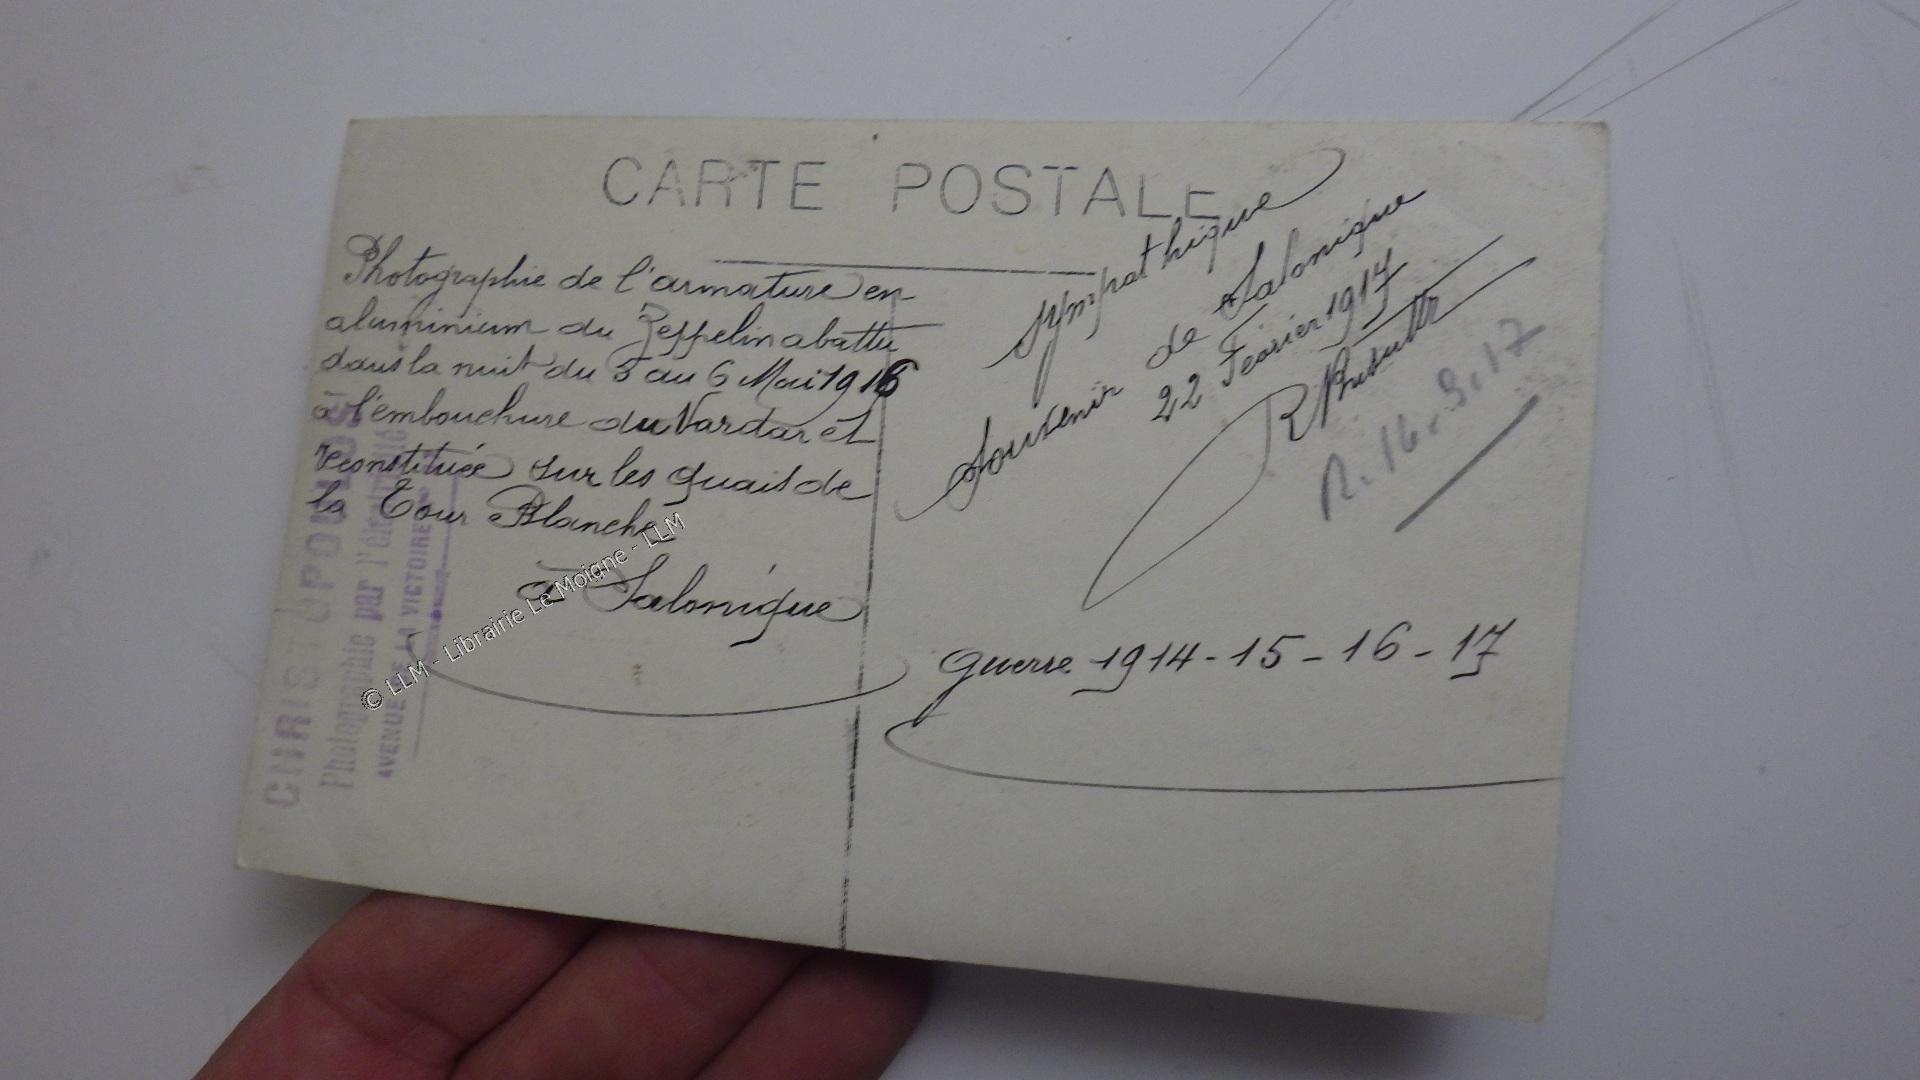 CARTE POSTALE
Photographie de l'armature en
aluminium du Zeppelin abattu
dans la nuit du 5 au 6 Mai 1916
à l'embouchure du Vardar et
reconstituée sur les quais de
la Tour Blanche
à Salonique
Sympathique
Souvenir de Salonique
22 Fevrier 1917
R
R. 16.3.17
guerre 1914-15-16-17
CHRISTOPOULOS
Photographie par l'électricité
AVENUE DE LA VICTOIRE
© LLM - Librairie Le Moigne - LLM